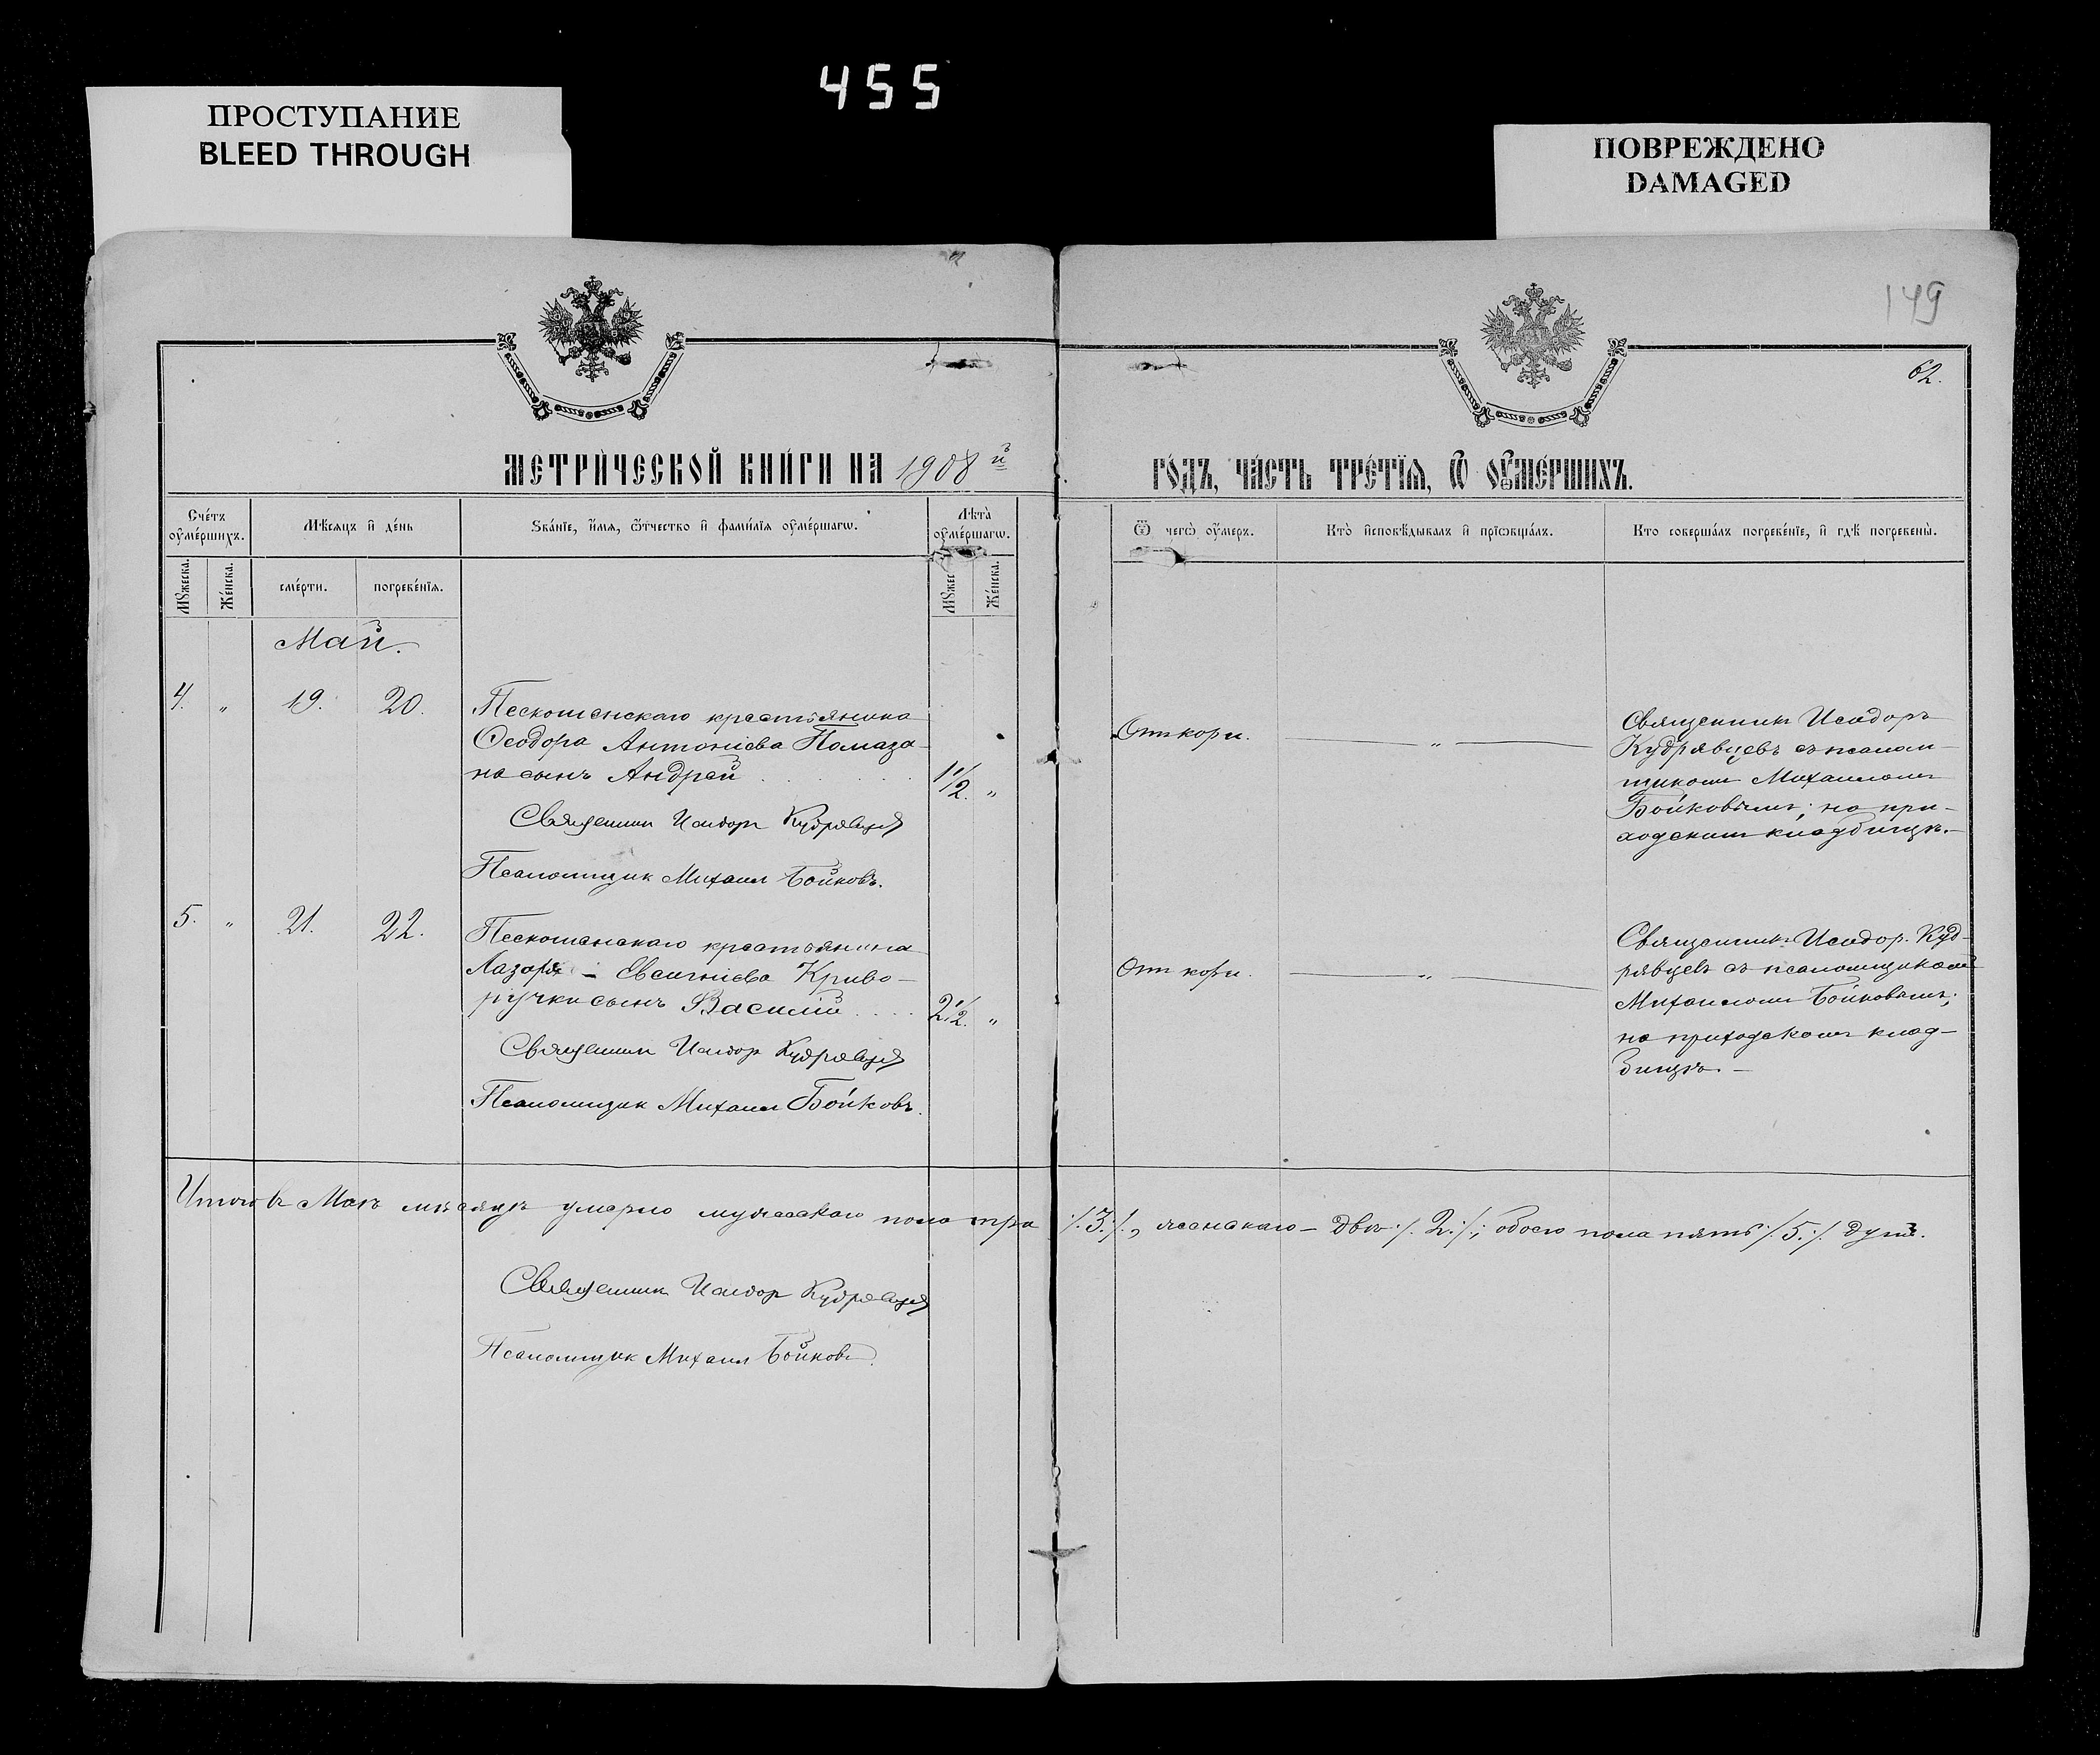 455
ПРОСТУПАНИЕ
BLEED THROUGH
ПОВРЕЖДЕНО
DAMAGED
149
62.
МЕТРИ́ЧЕСКОЙ КНИ́ГИ НА 1908 й
ГО́ДЪ, ЧА́СТЬ ТРЕ́ТЇѦ, Ѿ ОУ҆МЕ́РШИХЪ.
Сче́тъ оу҆ме́ршихъ.
Мѣ́сяцъ и҆ де́нь
Ѕва́нїе, и҆́мя, ѻ҆́тчество и҆ фами́лїя оу҆ме́ршагѡ.
Лѣта̀ оу҆ме́ршагѡ.
Ѿ чегѡ̀ оу҆́меръ.
Кто̀ и҆сповѣ́дывалъ и҆ прїѡбща́лъ.
Кто соверша́лъ погребе́нїе, и҆ гдѣ̀ погребены̀.
Мꙋ́жеска.
Же́нска.
сме́рти.
погребе́нїя.
Мꙋ́жес
Же́нска.
Май.
4. „ 19. 20. Пескошанскаго крестьянина
Ѳеодора Антоніева Помаза-
на сынъ Андрей . . . . . 1 1/2. „
Священник Исидор Кудрявцев
Псаломщик Михаил Бойковъ.
Отъ кори. — „ —
Священникъ Исидоръ
Кудрявцевъ съ псалом-
щикомъ Михаиломъ
Бойковымъ; на при-
ходскомъ кладбищѣ.—
5. „ 21. 22. Пескошанскаго крестьянина
Лазаря – Евсигніева Криво-
ручки сынъ Василій . . . . 2 1/2. „
Священник Исидор Кудрявцев
Псаломщик Михаил Бойковъ.
Отъ кори. — „ —
Священникъ Исидор. Куд-
рявцевъ съ псаломщикомъ
Михаиломъ Бойковымъ;
на приходскомъ клад-
бищѣ. —
Итого въ Маѣ мѣсяцѣ умерло мужескаго пола три /.3./., женскаго – двѣ ./. 2./.; обоего пола пять ./.5./. душъ.
Священник Исидор Кудрявцев
Псаломщик Михаил Бойковъ.